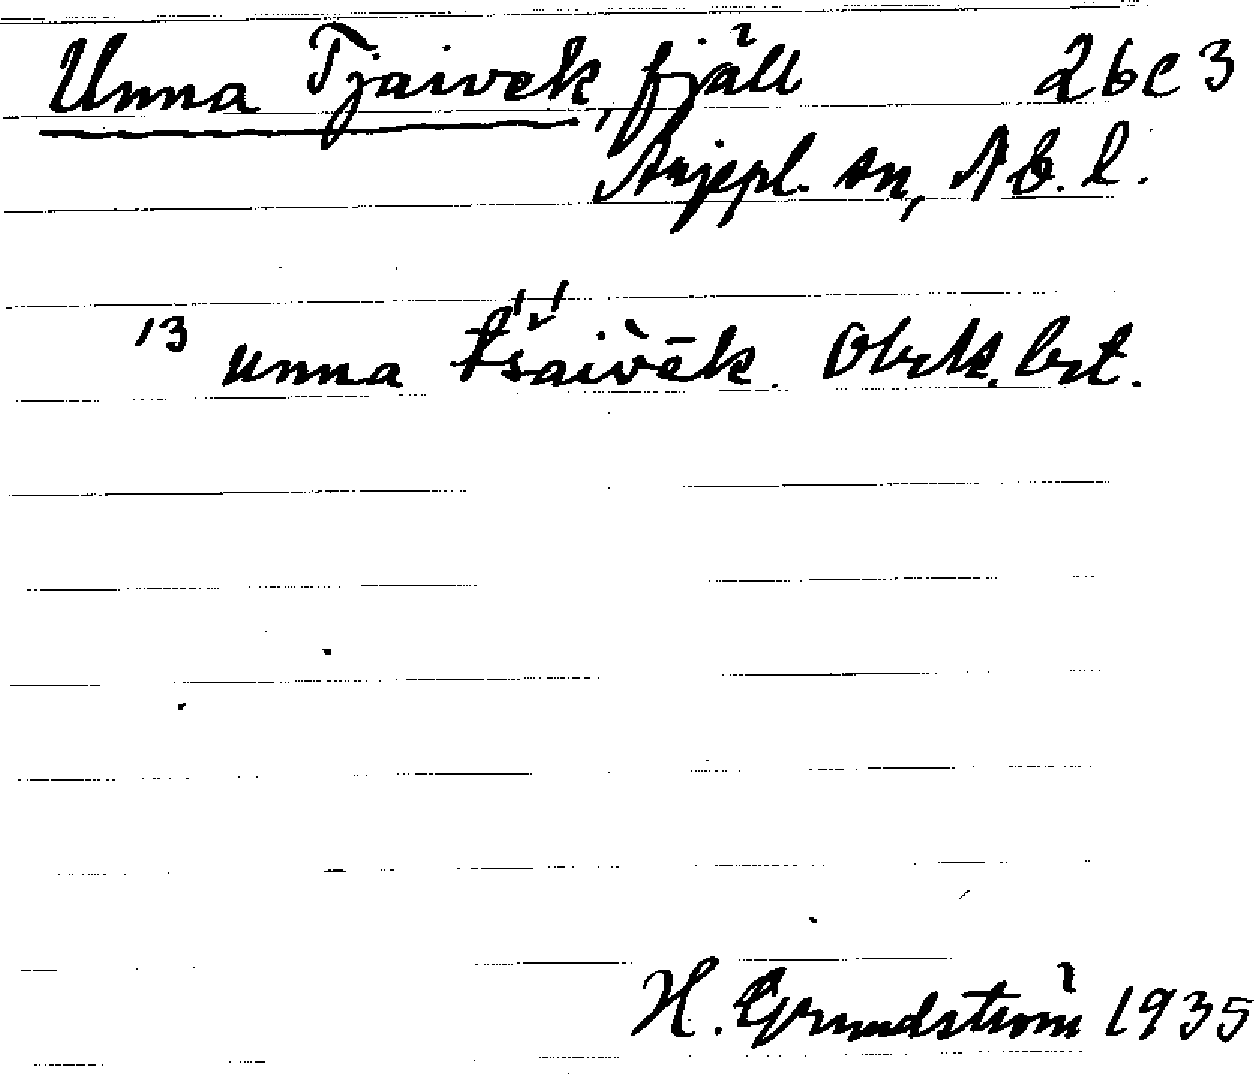 Unna Tjaivek, fjäll 26c3
Arjepl. sn, N.b.l.
13 unna tšaivēk. Obekts. best.
H. Grundström 1935